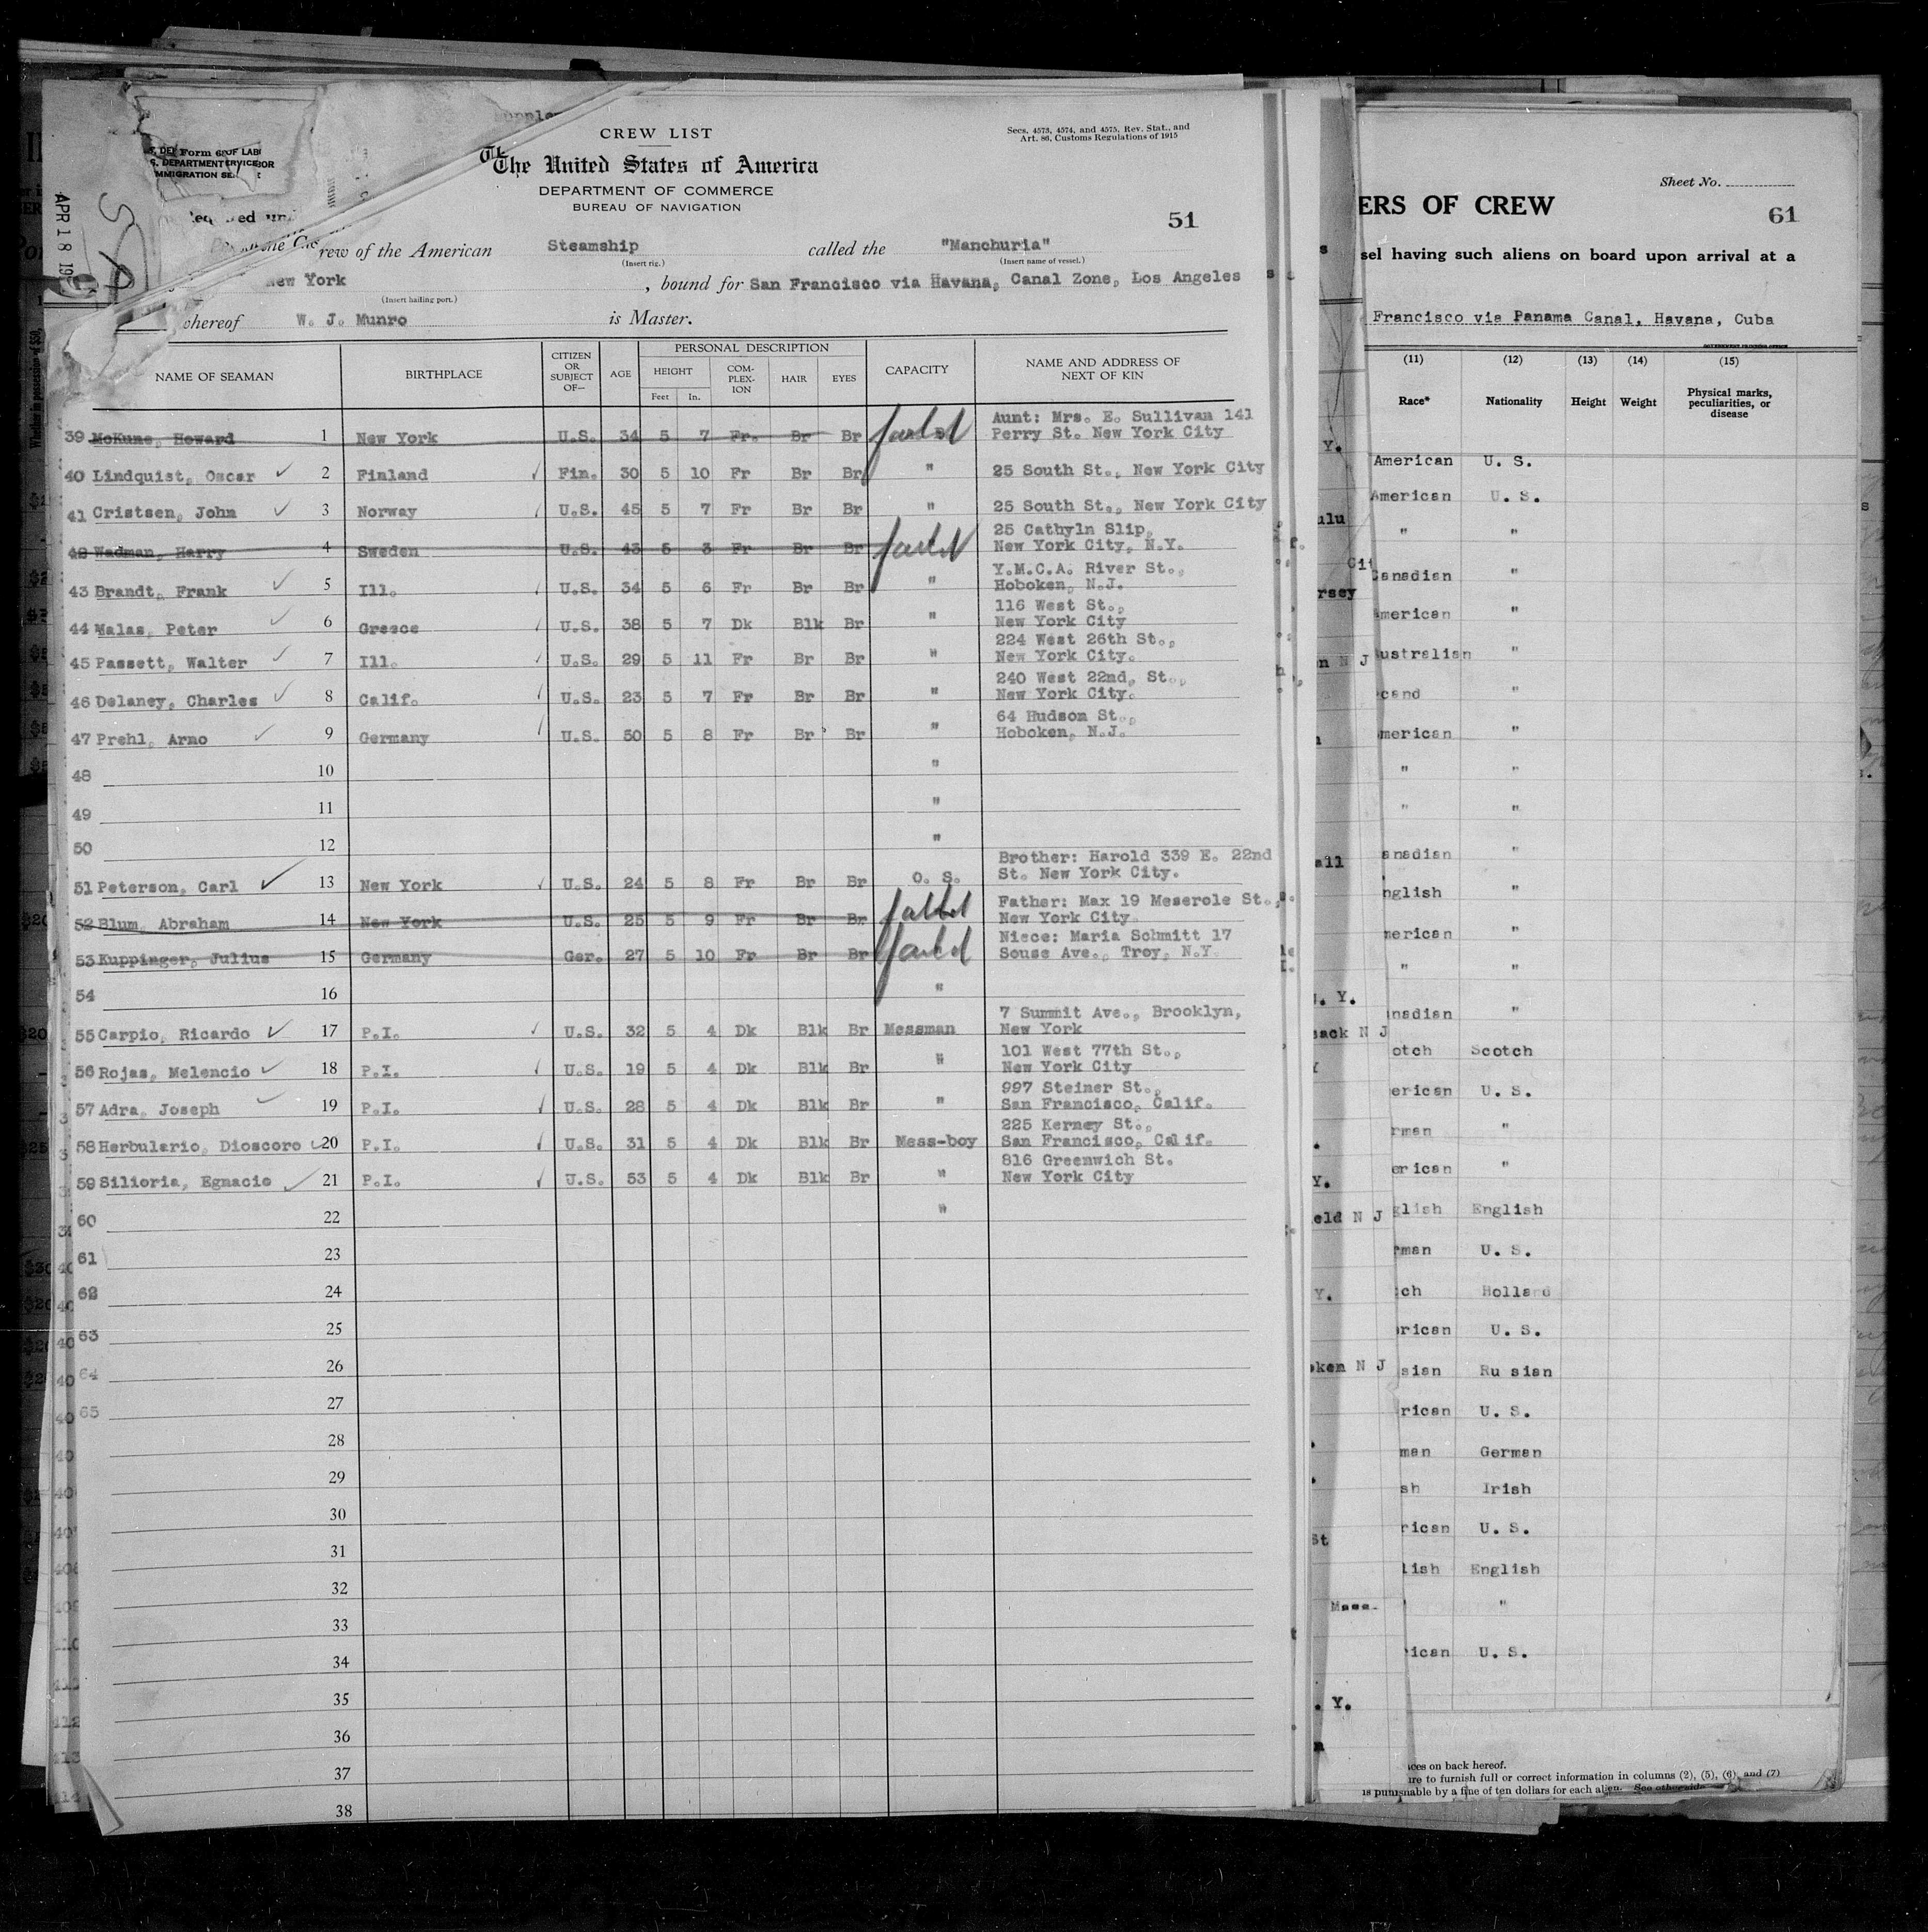 CREW LIST
Secs. 4573, 4574, and 4575, Rev. Stat., and
Art. 86, Customs Regulations of 1915
The United States of America
DEPARTMENT OF COMMERCE
BUREAU OF NAVIGATION
51
APR 18
rew of the American Steamship called the "Manchuria"
(Insert rig.) (Insert name of vessel.)
New York , bound for San Francisco via Havana, Canal Zone, Los Angeles
(Insert hailing port.)
whereof W. J. Munro is Master.
NAME OF SEAMAN BIRTHPLACE CITIZEN OR SUBJECT OF— AGE PERSONAL DESCRIPTION HEIGHT Feet In. COM-PLEX-ION HAIR EYES CAPACITY NAME AND ADDRESS OF NEXT OF KIN
39 McKune, Howard 1 New York U.S. 34 5 7 Fr. Br Br failed Aunt: Mrs. E. Sullivan 141
Perry St. New York City
40 Lindquist, Oscar 2 Finland Fin. 30 5 10 Fr Br Br " 25 South St., New York City
41 Cristsen, John 3 Norway U.S. 45 5 7 Fr Br Br " 25 South St., New York City
42 Wadman, Harry 4 Sweden U.S. 43 5 3 Fr Br Br failed 25 Cathyln Slip,
New York City, N.Y.
43 Brandt, Frank 5 Ill. U.S. 34 5 6 Fr Br Br " Y.M.C.A. River St.,
Hoboken, N.J.
44 Malas, Peter 6 Greece U.S. 38 5 7 Dk Blk Br " 116 West St.,
New York City
45 Passett, Walter 7 Ill. U.S. 29 5 11 Fr Br Br " 224 West 26th St.,
New York City.
46 Delaney, Charles 8 Calif. U.S. 23 5 7 Fr Br Br " 240 West 22nd, St.,
New York City.
47 Prehl, Arno 9 Germany U.S. 50 5 8 Fr Br Br " 64 Hudson St.,
Hoboken, N.J.
48 10 "
49 11 "
50 12 "
51 Peterson, Carl 13 New York U.S. 24 5 8 Fr Br Br O. S. Brother: Harold 339 E. 22nd
St. New York City.
52 Blum, Abraham 14 New York U.S. 25 5 9 Fr Br Br failed Father: Max 19 Meserole St.,
New York City
53 Kuppinger, Julius 15 Germany Ger. 27 5 10 Fr Br Br failed Niece: Maria Schmitt 17
Souse Ave., Troy, N.Y.
54 16 "
55 Carpio, Ricardo 17 P.I. U.S. 32 5 4 Dk Blk Br Messman 7 Summit Ave., Brooklyn,
New York
56 Rojas, Melencio 18 P.I. U.S. 19 5 4 Dk Blk Br " 101 West 77th St.,
New York City
57 Adra, Joseph 19 P.I. U.S. 28 5 4 Dk Blk Br " 997 Steiner St.,
San Francisco, Calif.
58 Herbulario, Dioscoro 20 P.I. U.S. 31 5 4 Dk Blk Br Mess-boy 225 Kerney St.,
San Francisco, Calif.
59 Silioria, Egnacio 21 P.I. U.S. 53 5 4 Dk Blk Br " 816 Greenwich St.
New York City
60 22 "
61 23
62 24
63 25
64 26
65 27
28
29
30
31
32
33
34
35
36
37
38
Sheet No.
ERS OF CREW
61
sel having such aliens on board upon arrival at a
Francisco via Panama Canal, Havana, Cuba
GOVERNMENT PRINTING OFFICE
(11) (12) (13) (14) (15)
Race* Nationality Height Weight Physical marks, peculiarities, or disease
American U. S.
American U. S.
" "
Canadian "
American "
Australian "
cand "
merican "
" "
" "
anadian "
nglish "
merican "
" "
nadian "
otch Scotch
erican U. S.
rman "
erican "
glish English
rman U. S.
ch Holland
rican U. S.
sian Ru sian
rican U. S.
man German
sh Irish
rican U. S.
lish English
"
ican U. S.
ces on back hereof.
ure to furnish full or correct information in columns (2), (5), (6), and (7)
is punishable by a fine of ten dollars for each alien. See otherside